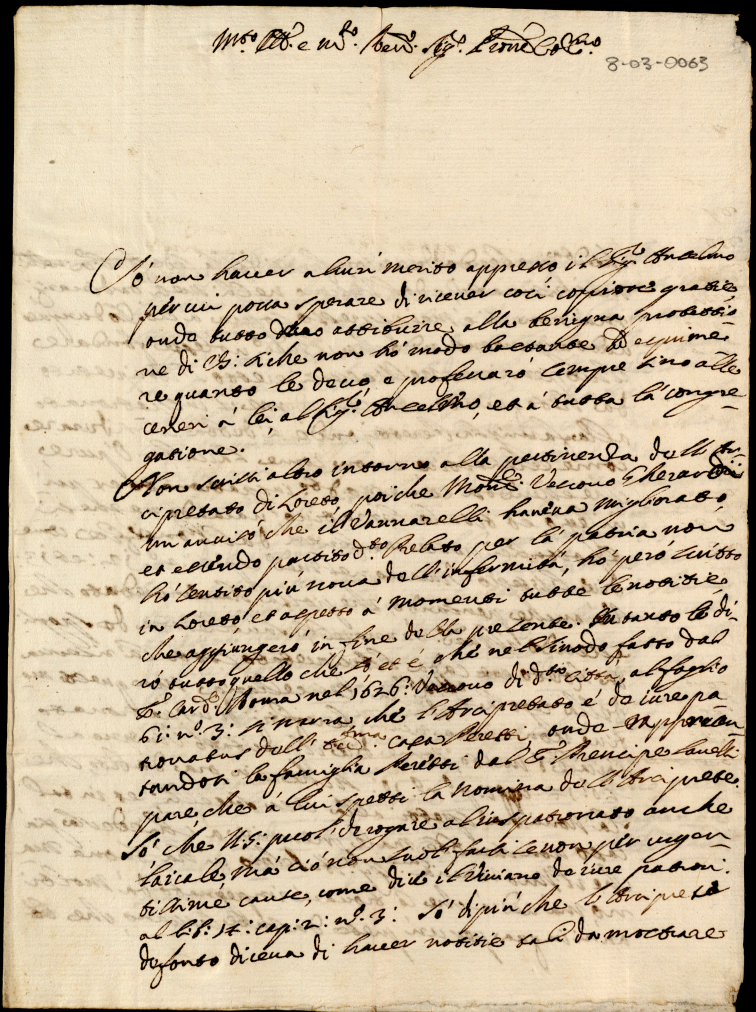 M.to Ill. e m.to Rev. Sig.r P.rone Col.mo
8-03-0063
Sò non haver alcun merito appresso il Sig.r Anselmo
per cui possa sperare di ricever così copiose gratie
onde tutto devo attribuire alla benigna protettio
ne di V.S. sì che non hò modo bastante di esprime-
re quanto le devo, e professarò sempre sino alle
ceneri à lei, al Sig.r Anselmo, et à tutta la congre-
gatione.
Non scrissi altro intorno alla pertinenza dell'Ar-
cipretato di Loreto poiche Mons.r Vescovo Gherardi
mi avvisò che il Vannarelli haveva migliorato,
et essendo partito d.to Prelato per la patria non
hò sentito più nova dell'infermità, hò però scritto
in Loreto et aspetto à momenti tutte le notitie
che aggiungerò in fine della presente. In tanto le di-
rò tutto quello che sò et è che nel sinodo fatto dal
S.r Card.l Roma nel 1626: Vescovo di d.ta Città, al foglio
61: n.o 3: si narra che l'Arcipretato è de iure pa
tronatus dell' Ecc.ma casa Peretti, onde rappresen
tandosi la famiglia Peretti dal S.r Prencipe Savelli
pare che à lui spetti la nomina dell'Arciprete.
Sò che N.S: puol derogare al ius patronato anche
laicale, mà ciò non suol farsi se non per urgen
tissime cause, come dice il Viviano de iure patron:
al lib: 14: cap: 2: n.o 3: Sò di più che l'Arciprete
defonto diceva di haver notitie tali da mostrare